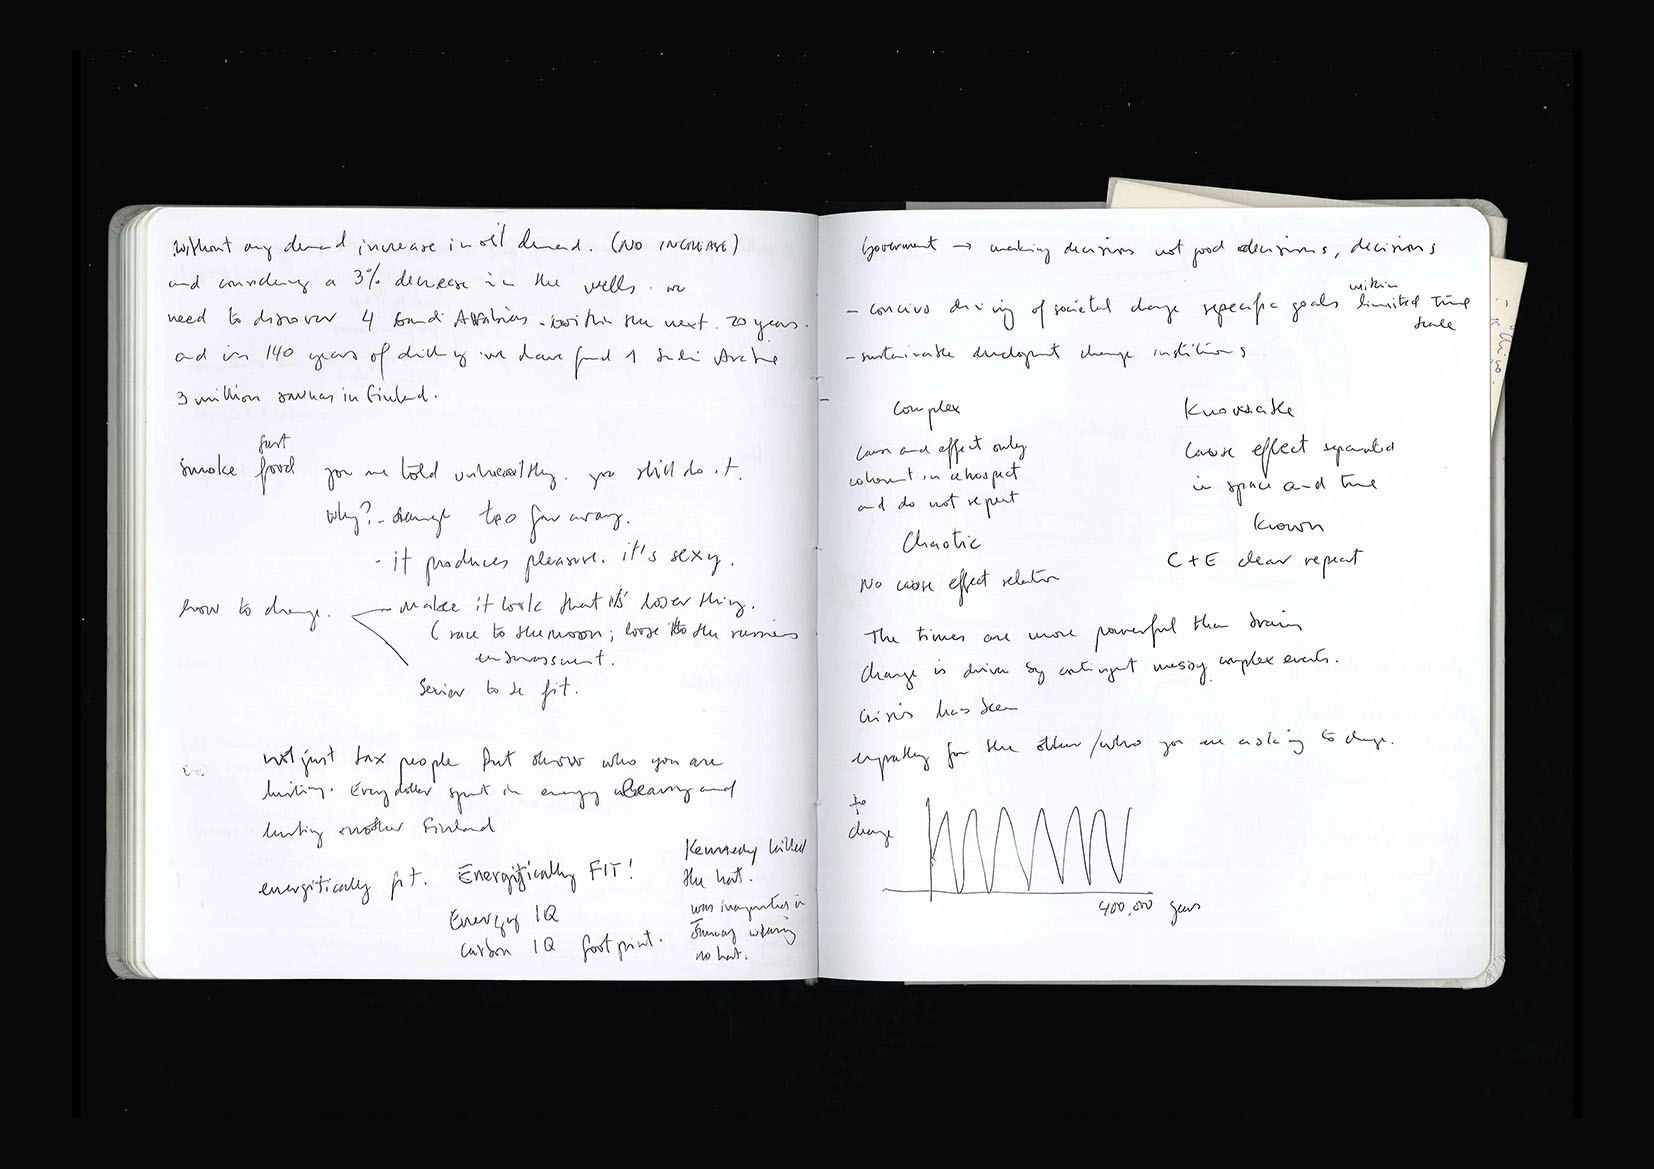 Without any demand increase in oil demand. (NO INCREASE)
and considering a 3% decrease in the wells. we
need to discover 4 Saudi Arabias. within the next. 20 years.
and in 140 years of we have found 1 Saudi Arabia
3 million saunas in Finland.
fast
smoke food you are told unhealthy. you still do it.
why? - too far away.
- it produces pleasure. it's sexy.
how to change. - make it look that it's loser thing.
(race to the moon; loose to the russians
embarrassment.
to be fit.
not just tax people but show who you are
hurting. Every dollar spent in energy and
hurting another Finland
energitically fit. Energitically FIT!
Energy IQ
carbon IQ footprint.
Kennedy killed
the hat.
was inaugurated in
January wearing
no hat.
Government → making decisions not good decisions, decisions
- driving of societal change specific goals within limited time
scale
- sustainable development change institutions
Complex
cause and effect only
coherent in retrospect
and do not repeat
Knowable
Cause effect separated
in space and time
Chaotic
No cause effect relation
Known
C + E clear repeat
The times are more powerful than brains
change is driven by contingent messy complex events.
crisis has been
empathy for the other / who you are asking to change.
change
400,000 years